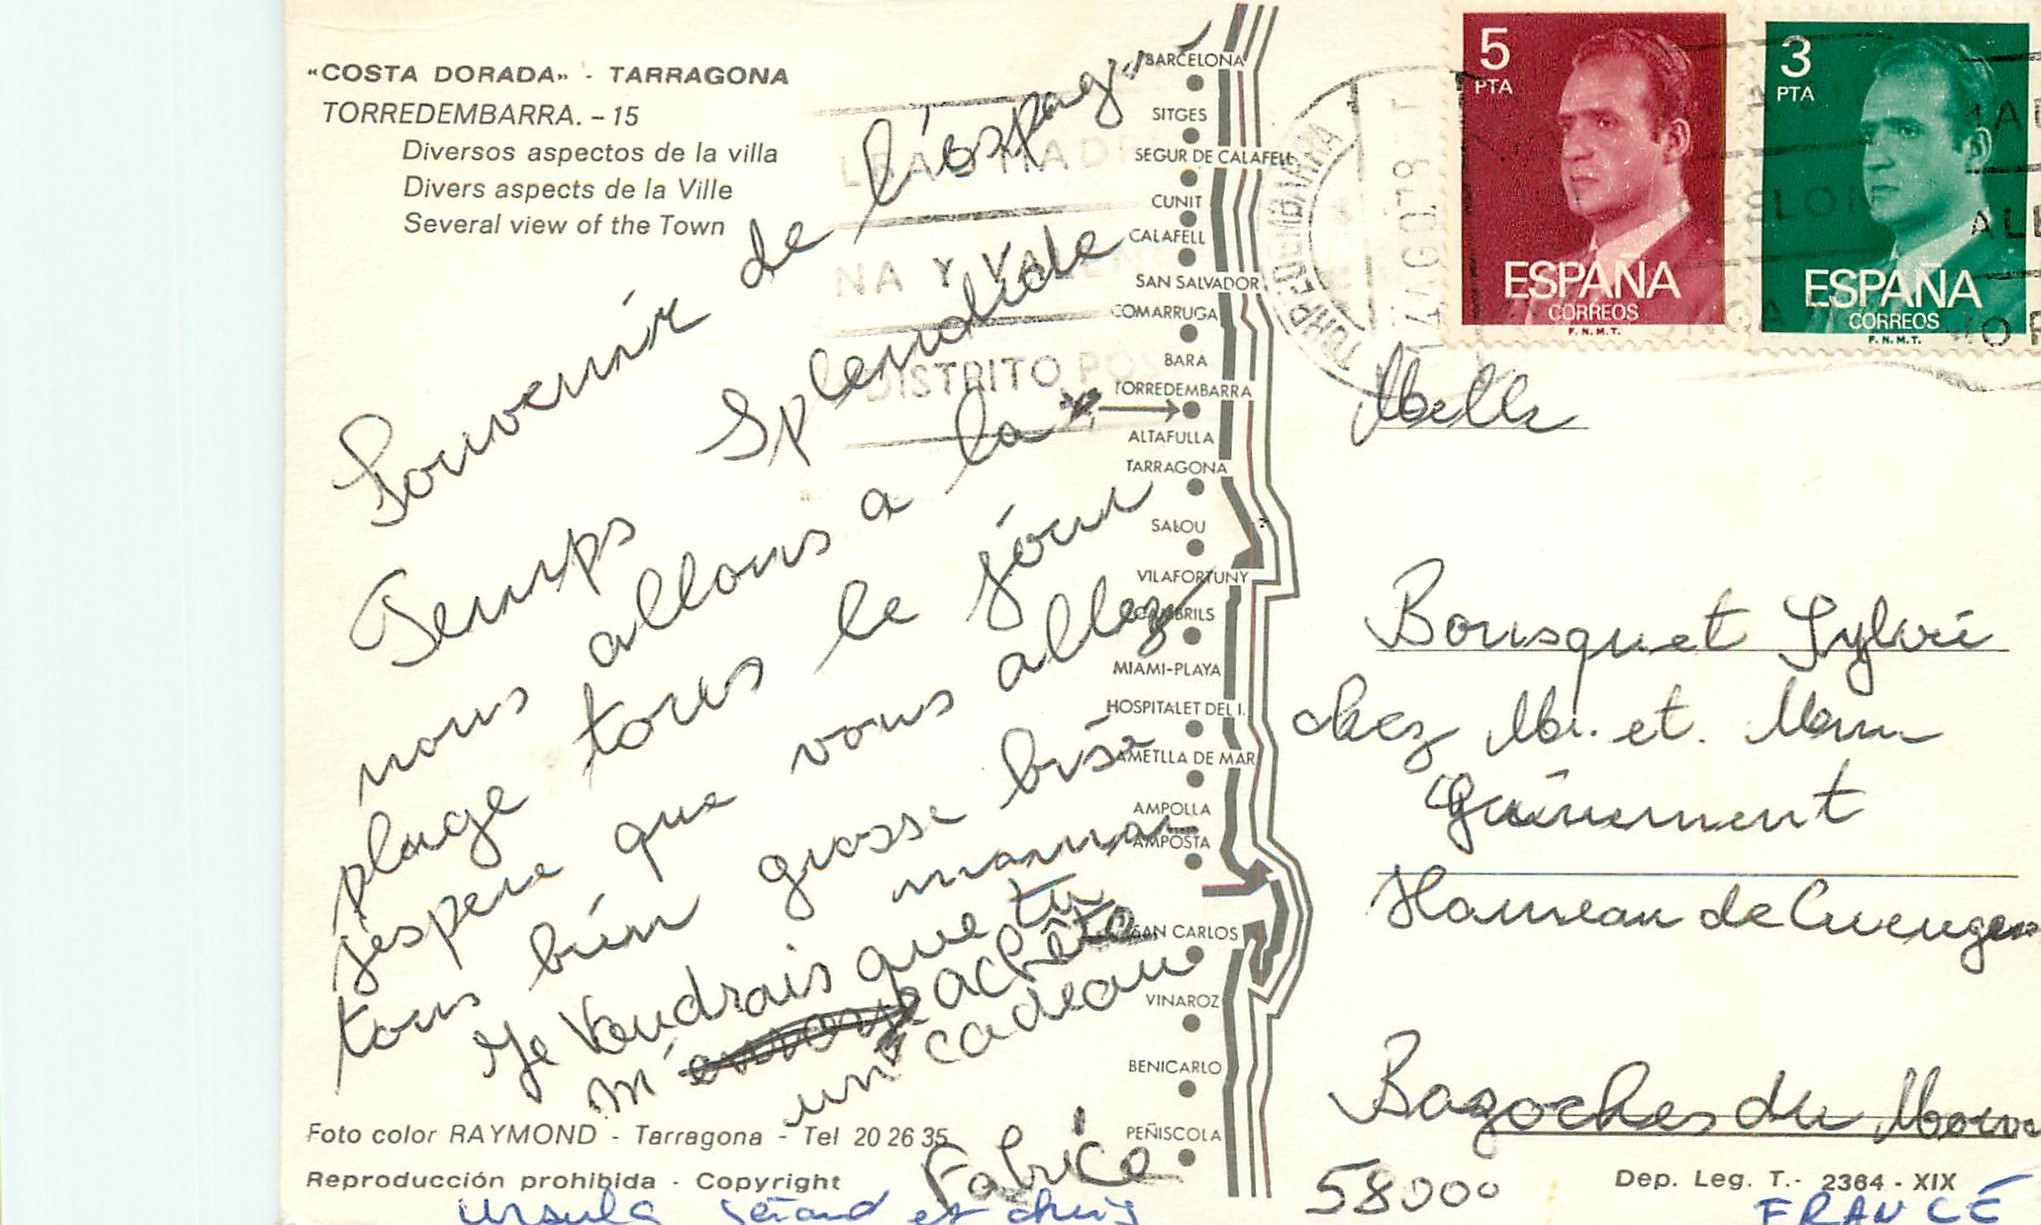 «COSTA DORADA» - TARRAGONA
TORREDEMBARRA. - 15
Diversos aspectos de la villa
Divers aspects de la Ville
Several view of the Town
Souvenir de l'éspagne
Temps Splendide
nous allons a la
plage tous le jour
jéspere que vous allez
tous bien grosse bise
maman
Je Voudrais que tu
m' achète
un cadeau
Fabrice
Ursula Gérard et chris
Foto color RAYMOND - Tarragona - Tel 20 26 35
Reproducción prohibida - Copyright
BARCELONA
SITGES
SEGUR DE CALAFELL
CUNIT
CALAFELL
SAN SALVADOR
COMARRUGA
BARA
TORREDEMBARRA
ALTAFULLA
TARRAGONA
SALOU
VILAFORTUNY
CAMBRILS
MIAMI-PLAYA
HOSPITALET DEL I.
AMETLLA DE MAR
AMPOLLA
AMPOSTA
SAN CARLOS
VINAROZ
BENICARLO
PEÑISCOLA
NA Y VALEN
DISTRITO POS
TORREDEMBARRA
5
PTA
ESPAÑA
CORREOS
F.N.M.T.
3
PTA
ESPAÑA
CORREOS
F.N.M.T.
Melle
Bousquet Sylvie
chez Mr. et. Mme
Guinement
Hameau de
Bazoches du Morva
58000
Dep. Leg. T.- 2364 - XIX
FRANCE